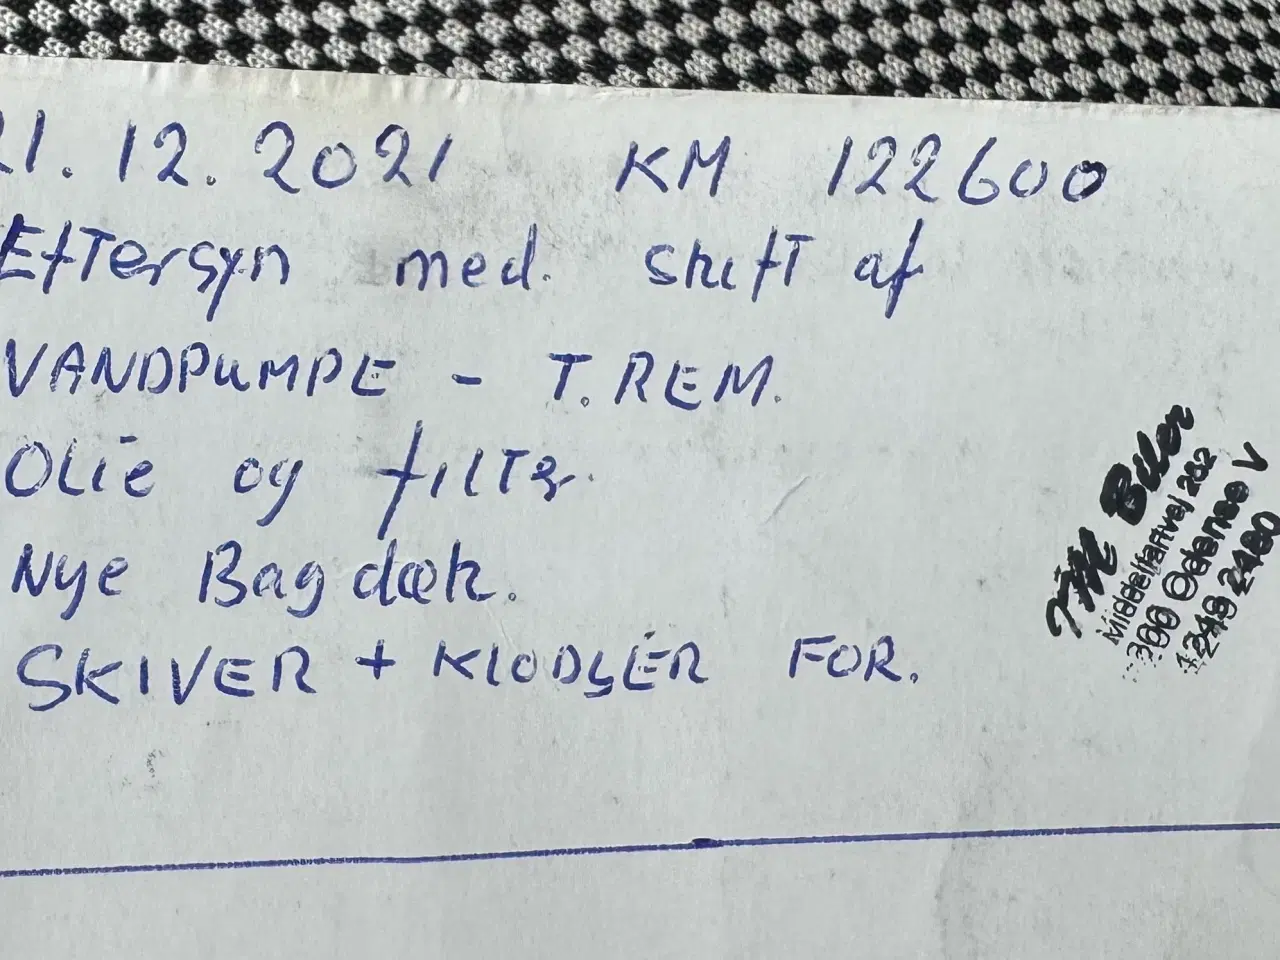 21.12.2021 KM 122600
Eftersyn med. skift af
VANDPUMPE - T.REM.
Olie og filter.
Nye Bagdæk.
SKIVER + KLODSER FOR.
Biler
Middelfartvej 262
Odense V
2480